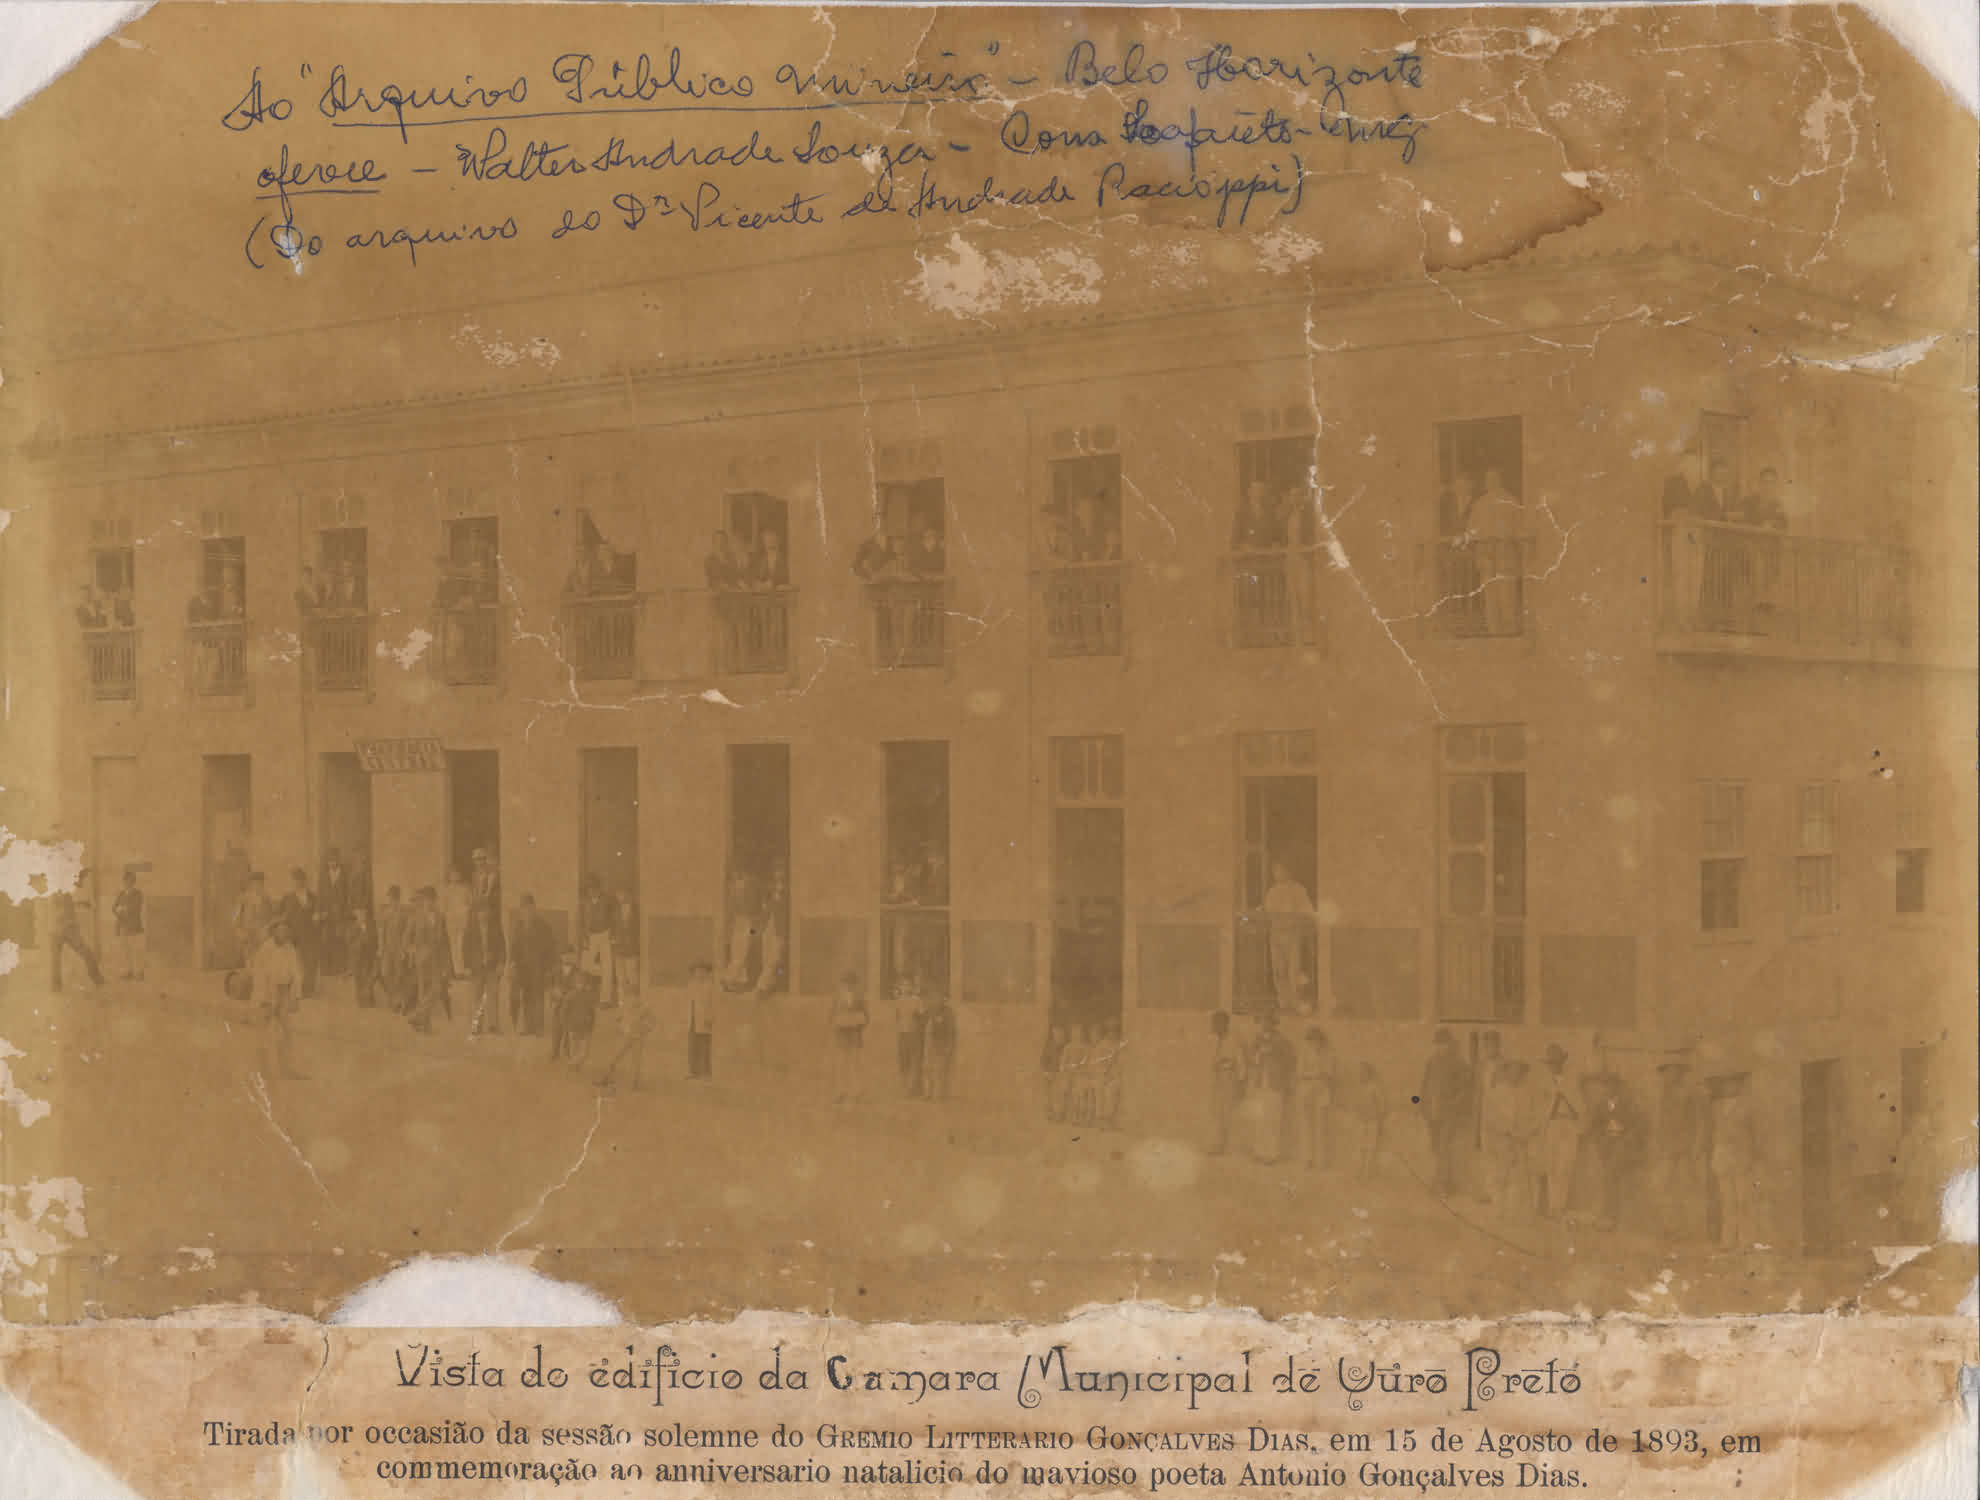 Ao "Arquivo Público Mineiro" - Belo Horizonte
oferece - Walter Andrade Souza - Cons Lafaiete - MG
(Do arquivo do Dr Vicente de Andrade Racioppi)
Vista do edificio da Camara Municipal de Ouro Preto
Tirada por occasião da sessão solemne do GREMIO LITTERARIO GONÇALVES DIAS, em 15 de Agosto de 1893, em
commemoração ao anniversario natalicio do mavioso poeta Antonio Gonçalves Dias.